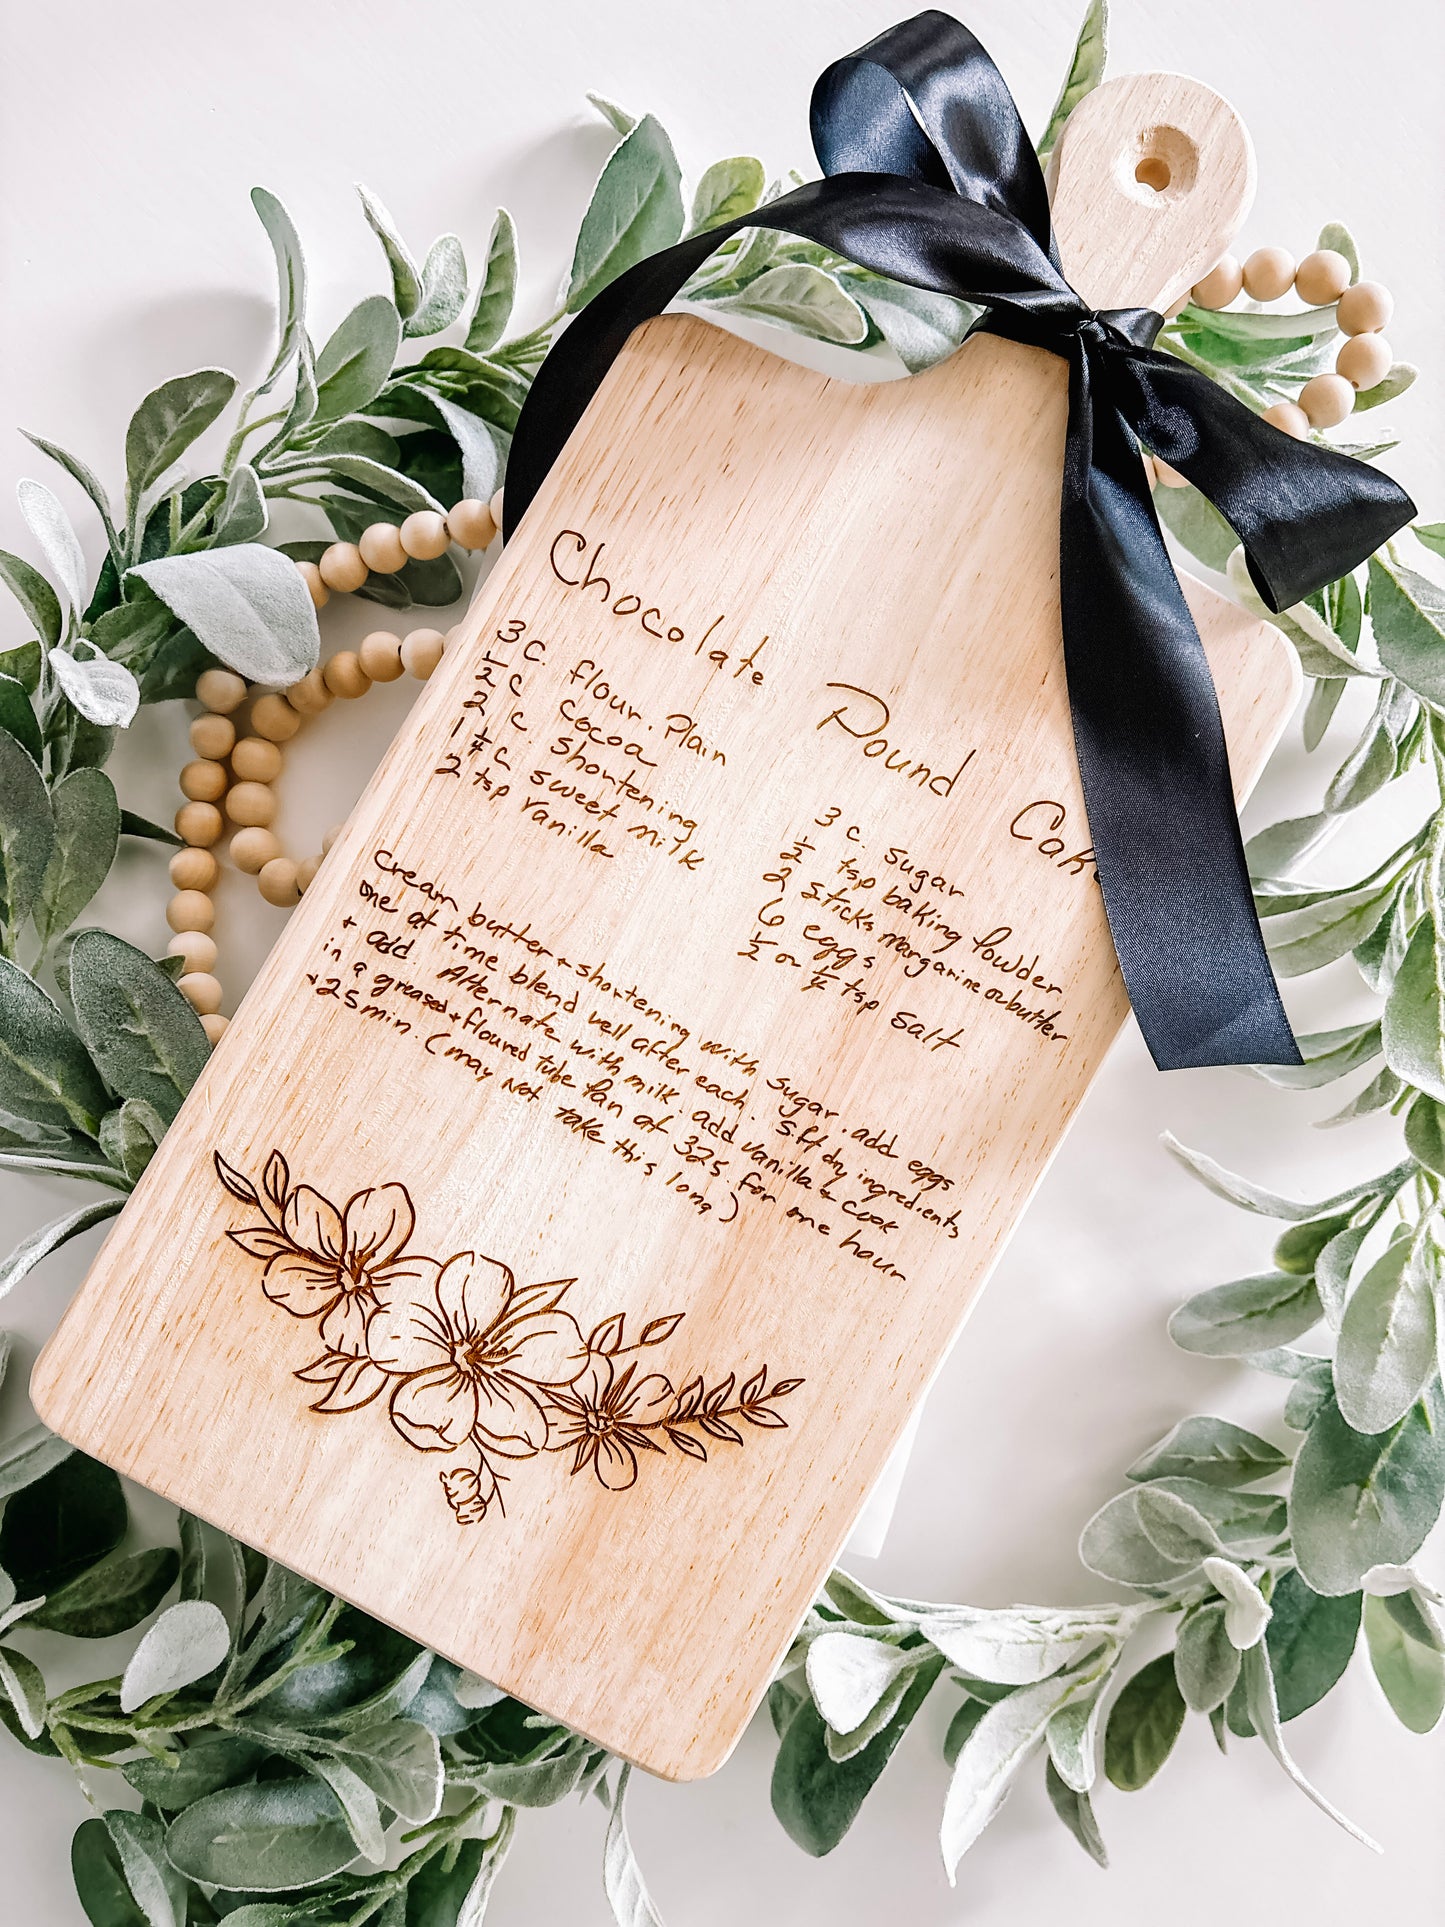 Chocolate Pound Cake
3 c. flour. Plain
½ c cocoa
2 c. shortening
1 ¼ c sweet milk
2 tsp vanilla
3 c. sugar
½ tsp baking powder
2 sticks margarine or butter
6 eggs
½ or ¼ tsp salt
Cream butter + shortening with sugar. add eggs
one at time blend well after each. Sift dry ingredients
+ add. Alternate with milk. add vanilla & cook
in a greased + floured tube pan at 325 for one hour
+ 25 min. (may not take this long)